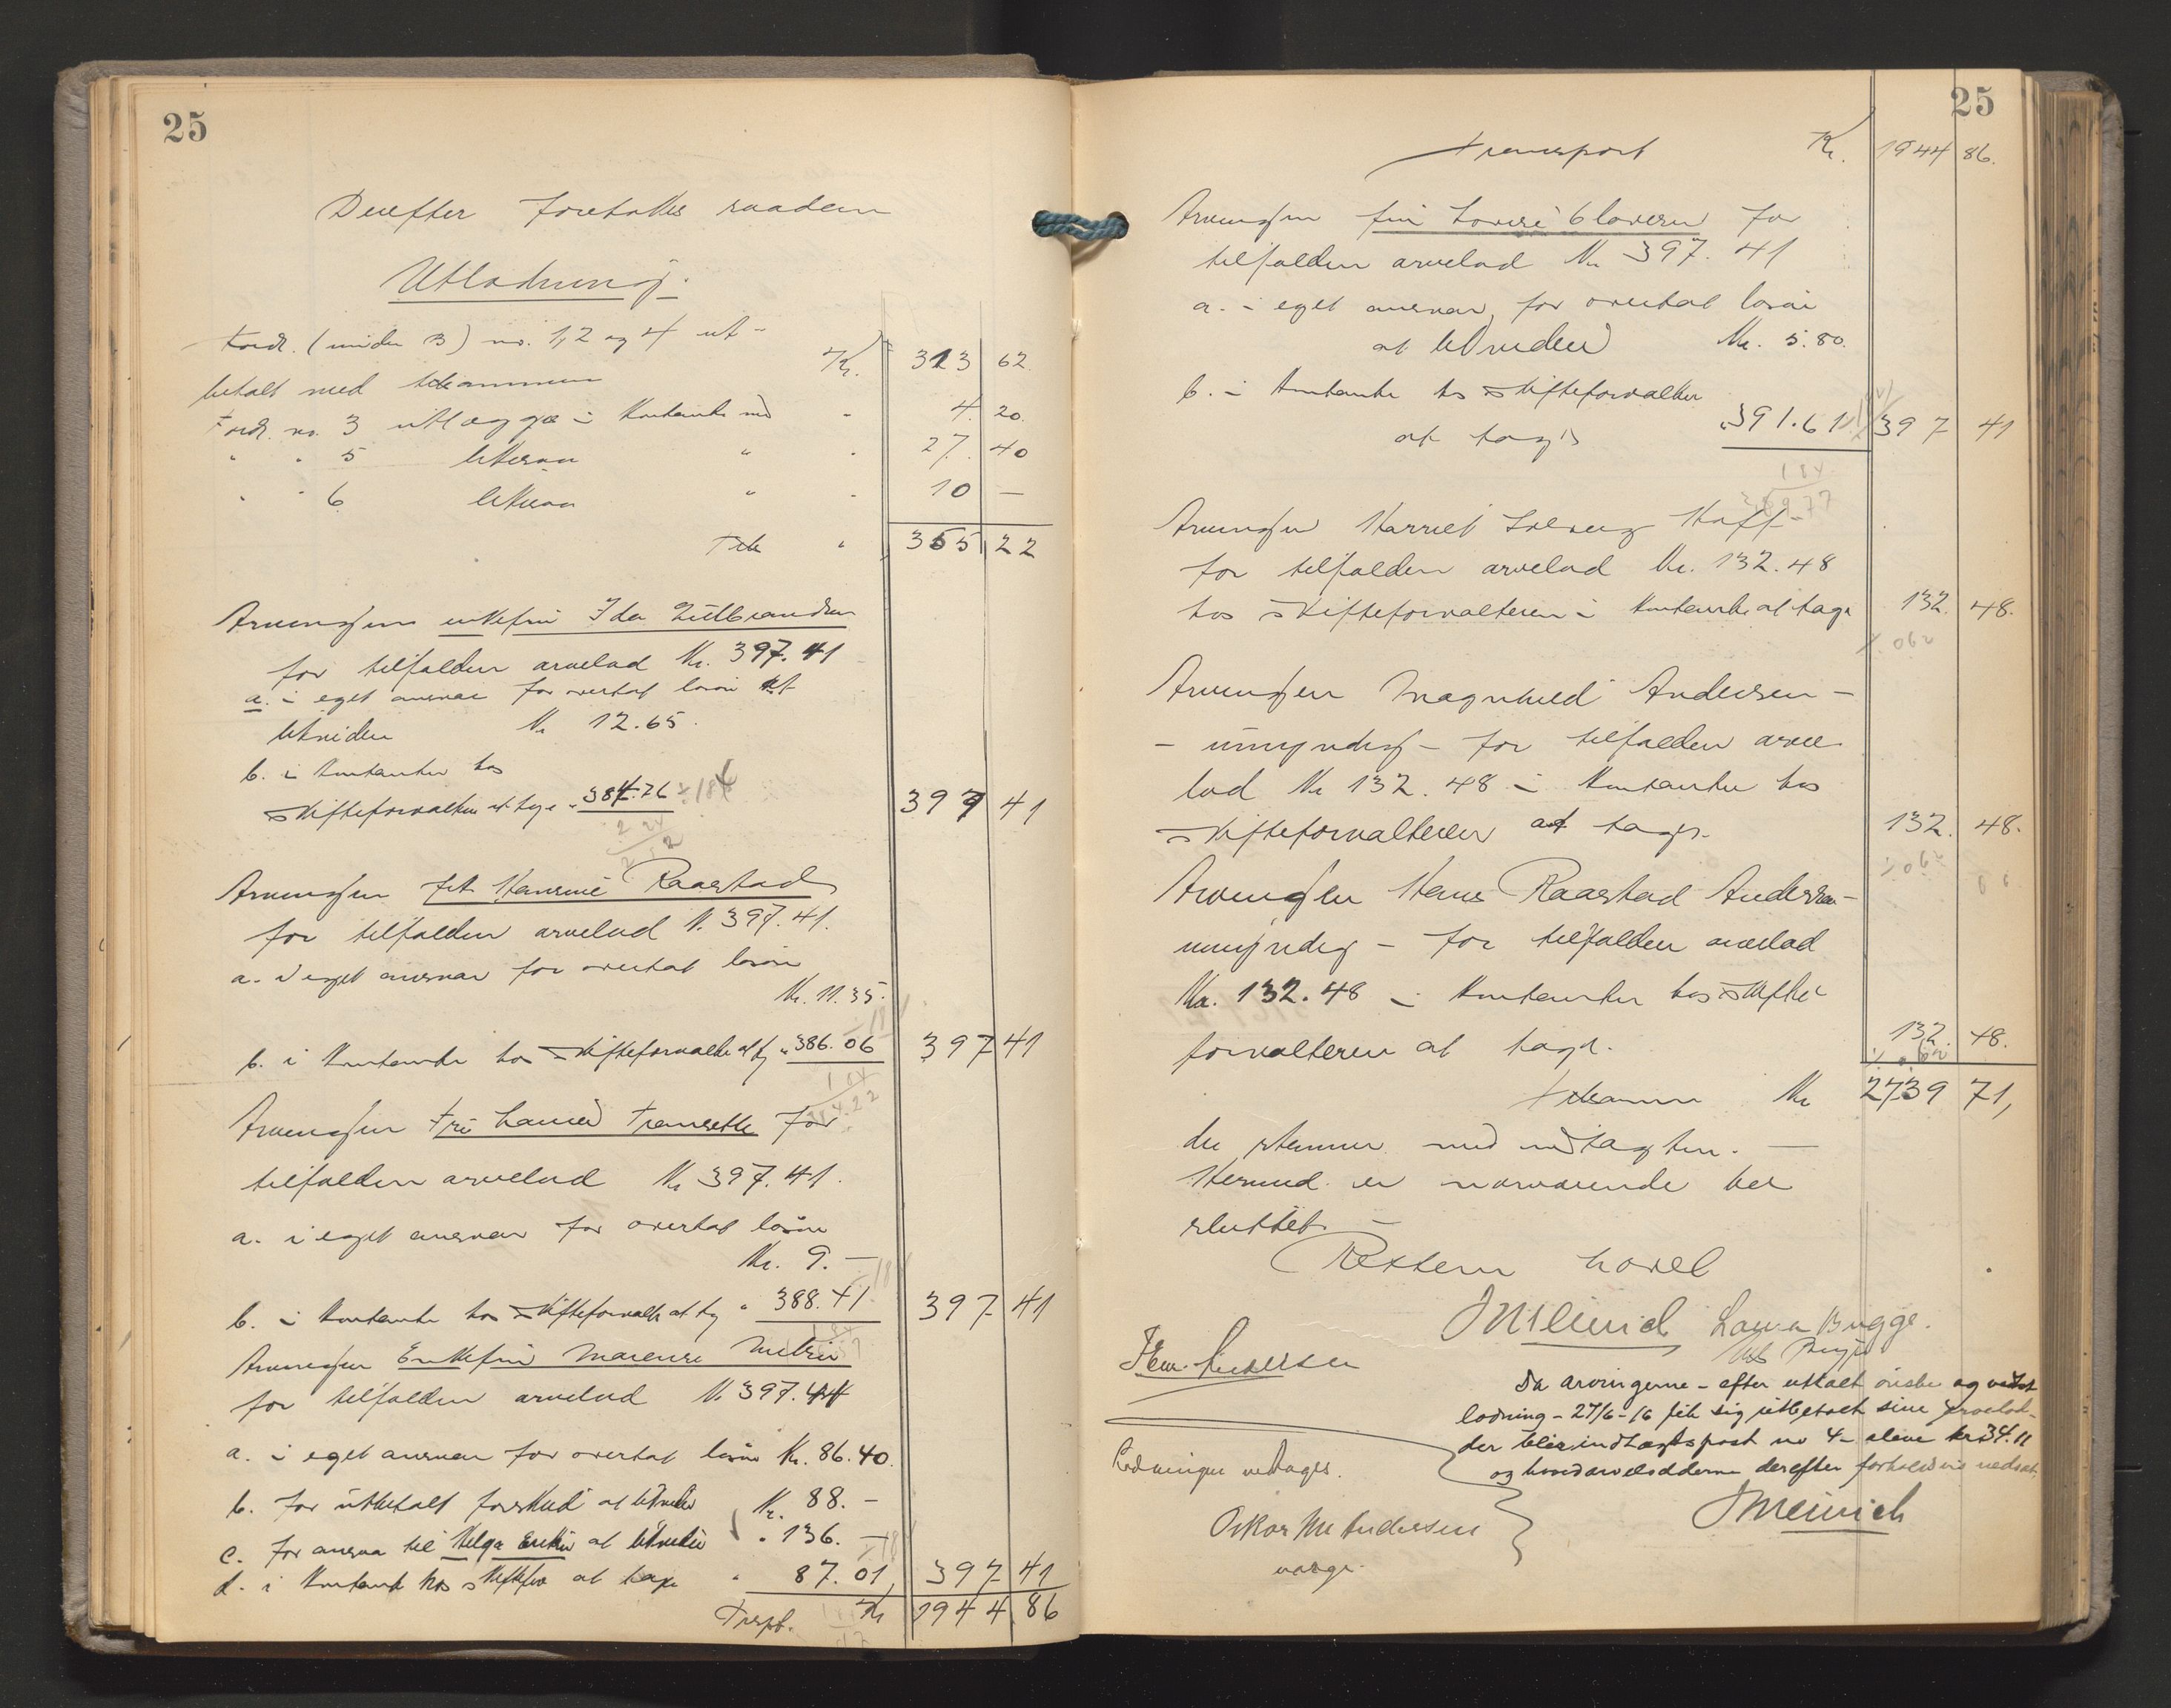 25
Derefter foretokes saadan
Utlodning.
Fordr. (under B) no. 1, 2 og 4 ut-
betalt med tilsammen Kr. 313 62
Fordr. no. 3 utlægges i kontanter med - 4. 20.
" " 5 likesaa " - 27. 40
" " 6 likesaa " - 10 —
Tils. " 355 22
Arvingen enkefru Ida Gulbrandsen
for tilfalden arvelod Kr. 397.41
a. i eget ansvar for overtat løsøre at
likvidere Kr 12.65.
b. i kontanter hos
skifteforvalteren at tage " 384.76 397 41
Arvingen frk. Hansine Raastad
for tilfalden arvelod Kr. 397.41.
a. i eget ansvar for overtat løsøre
Kr. 11.35.
b. i kontanter hos skifteforvalter at tage " 386.06 397 41
Arvingen Fru for
tilfalden arvelod Kr 397.41.
a. i eget ansvar for overtat løsøre
Kr. 9. —
b. i kontanter hos skifteforvalt. at tage " 388.41 397 41
Arvingen Enkefru Marense
for tilfalden arvelod Kr 397.41
a. i eget ansvar for overtat løsøre Kr. 86.40.
b. for utbetalt forskud at likvidere Kr. 88. -
c. for ansvar til Helga at likvidere " 136. —
d. i kontant hos skiftefor at tage " 87.01, 397 41
Trspt. Kr 1944 86
25
Transport Kr. 1944 86.
Arvingen fru Lovise Clausen for
tilfalden arvelod Kr 397.41
a. i eget ansvar for overtat løsøre
at likvidere Kr. 5.80.
b. i kontanter hos skifteforvalter
at tages " 391.61 397 41
Arvingen Harriet Solveig Hoff-
for tilfalden arvelod Kr. 132.48
hos skifteforvalteren i kontanter at tage 132. 48.
Arvingen Magnhild Andersen -
- umyndig - for tilfalden arve-
lod Kr 132.48 i kontanter hos
skifteforvalteren at tages. 132. 48.
Arvingen Hans Raastad Andersen -
umyndig - for tilfalden arvelod
Kr. 132.48 i kontanter hos skifte-
forvalteren at tage. 132. 48.
Tilsammen Kr 2739 71,
der stemmer med indtægten. —
Hermed er nærværende bo
sluttet. —
Retten hævet
JMeinich Laura Bugge.
Andersen
Da arvingerne - efter uttalt ønske og
lodning - 27/6-16 fik sig utbetalt sine arvelod-
der blir indtægtspost no 4 - alene kr 34.11
og hovedarvelodderne derefter forholdsvis nedsat.
JMeinich
Lodningen vedtages.
Oskar M Andersen
verge.